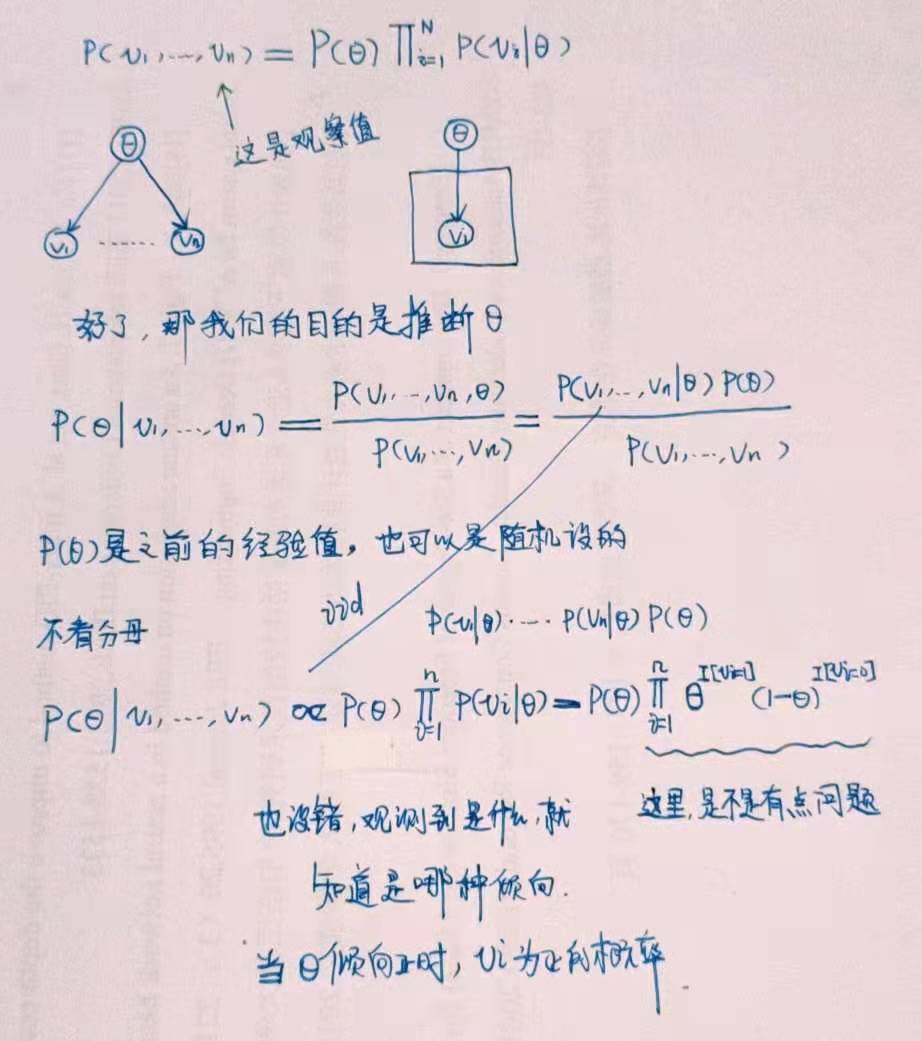 P(v₁,...,vₙ) = P(θ) ∏ᴺᵢ₌₁ P(vᵢ|θ)
这是观察值
θ
v₁ ...... vₙ
θ
vᵢ
好了,那我们的目的是推断θ
P(θ|v₁,...,vₙ) = P(v₁,...,vₙ,θ) / P(v₁,...,vₙ) = P(v₁,...,vₙ|θ) P(θ) / P(v₁,...,vₙ)
P(θ)是之前的经验值,也可以是随机设的
不看分母
iid
P(v₁|θ)·...·P(vₙ|θ) P(θ)
P(θ|v₁,...,vₙ) ∝ P(θ) ∏ⁿᵢ₌₁ P(vᵢ|θ) = P(θ) ∏ⁿᵢ₌₁ θ^I[vᵢ=1] (1-θ)^I[vᵢ=0]
这里,是不是有点问题
也没错,观测到是什么,就
知道是哪种倾向.
当θ倾向正时,vᵢ为正的概率.